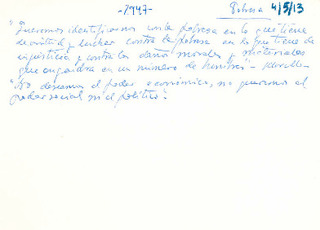 -1947-
Pobreza 4/5/13
"Queremos identificarnos con la pobreza en lo que tiene
de virtud y luchar contra la pobreza en lo que tiene de
injusticia y contra los daños morales y materiales
que engendra en un número de hombres" -
"No deseamos el poder económico, no queremos el
poder social ni el político".